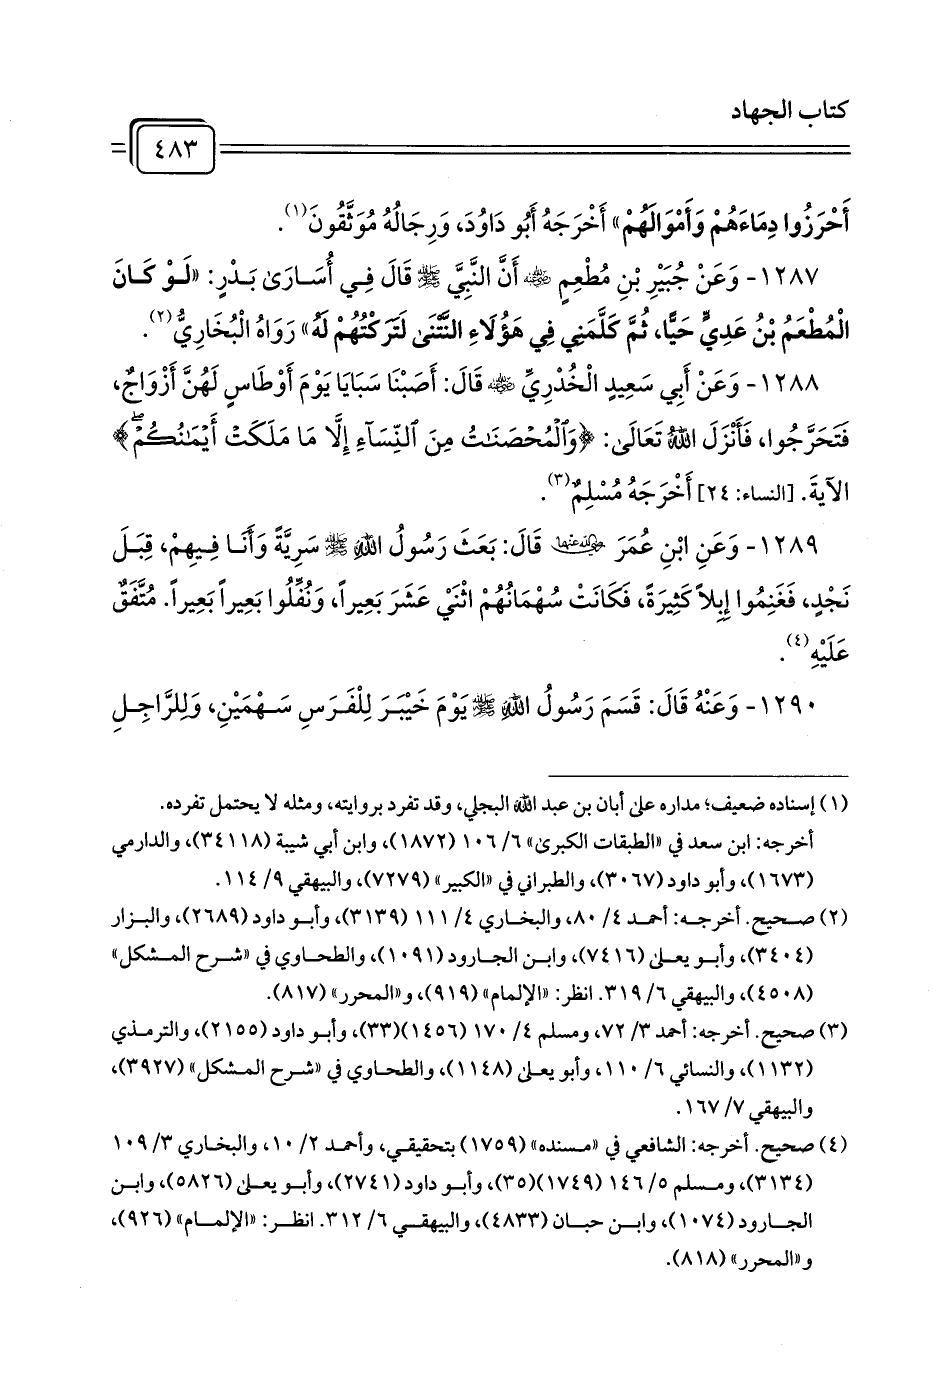 كتاب الجهاد
٤٨٣
أَحْرَزُوا دِمَاءَهُمْ وَأَمْوَالَهُمْ» أَخْرَجَهُ أَبُو دَاوُدَ، وَرِجَالُهُ مُوَثَّقُونَ(١).
١٢٨٧- وَعَنْ جُبَيْرِ بْنِ مُطْعِمٍ رضي الله عنه أَنَّ النَّبِيَّ ﷺ قَالَ فِي أُسَارَىٰ بَدْرٍ: «لَوْ كَانَ
الْمُطْعَمُ بْنُ عَدِيٍّ حَيًّا، ثُمَّ كَلَّمَنِي فِي هَؤُلَاءِ النَّتْنَىٰ لَتَرَكْتُهُمْ لَهُ» رَوَاهُ الْبُخَارِيُّ(٢).
١٢٨٨- وَعَنْ أَبِي سَعِيدٍ الْخُدْرِيِّ رضي الله عنه قَالَ: أَصَبْنَا سَبَايَا يَوْمَ أَوْطَاسٍ لَهُنَّ أَزْوَاجٌ،
فَتَحَرَّجُوا، فَأَنْزَلَ اللهُ تَعَالَىٰ: ﴿وَٱلْمُحْصَنَٰتُ مِنَ ٱلنِّسَآءِ إِلَّا مَا مَلَكَتْ أَيْمَٰنُكُمْ ۖ﴾
الآيةَ. [النساء: ٢٤] أَخْرَجَهُ مُسْلِمٌ(٣).
١٢٨٩- وَعَنِ ابْنِ عُمَرَ رضي الله عنهما قَالَ: بَعَثَ رَسُولُ اللهِ ﷺ سَرِيَّةً وَأَنَا فِيهِمْ، قِبَلَ
نَجْدٍ، فَغَنِمُوا إِبِلاً كَثِيرَةً، فَكَانَتْ سُهْمَانُهُمْ اثْنَيْ عَشَرَ بَعِيراً، وَنُفِّلُوا بَعِيراً بَعِيراً. مُتَّفَقٌ
عَلَيْهِ(٤).
١٢٩٠- وَعَنْهُ قَالَ: قَسَمَ رَسُولُ اللهِ ﷺ يَوْمَ خَيْبَرَ لِلْفَرَسِ سَهْمَيْنِ، وَلِلرَّاجِلِ
(١) إسناده ضعيف؛ مداره على أبان بن عبد الله البجلي، وقد تفرد بروايته، ومثله لا يحتمل تفرده.
أخرجه: ابن سعد في «الطبقات الكبرىٰ» ٦/ ١٠٦ (١٨٧٢)، وابن أبي شيبة (٣٤١١٨)، والدارمي
(١٦٧٣)، وأبو داود (٣٠٦٧)، والطبراني في «الكبير» (٧٢٧٩)، والبيهقي ٩/ ١١٤.
(٢) صحيح. أخرجه: أحمد ٤/ ٨٠، والبخاري ٤/ ١١١ (٣١٣٩)، وأبو داود (٢٦٨٩)، والبزار
(٣٤٠٤)، وأبو يعلى (٧٤١٦)، وابن الجارود (١٠٩١)، والطحاوي في «شرح المشكل»
(٤٥٠٨)، والبيهقي ٦/ ٣١٩. انظر: «الإلمام» (٩١٩)، و«المحرر» (٨١٧).
(٣) صحيح. أخرجه: أحمد ٣/ ٧٢، ومسلم ٤/ ١٧٠ (١٤٥٦)(٣٣)، وأبو داود (٢١٥٥)، والترمذي
(١١٣٢)، والنسائي ٦/ ١١٠، وأبو يعلى (١١٤٨)، والطحاوي في «شرح المشكل» (٣٩٢٧)،
والبيهقي ٧/ ١٦٧.
(٤) صحيح. أخرجه: الشافعي في «مسنده» (١٧٥٩) بتحقيقي، وأحمد ٢/ ١٠، والبخاري ٣/ ١٠٩
(٣١٣٤)، ومسلم ٥/ ١٤٦ (١٧٤٩)(٣٥)، وأبو داود (٢٧٤١)، وأبو يعلى (٥٨٢٦)، وابن
الجارود (١٠٧٤)، وابن حبان (٤٨٣٣)، والبيهقي ٦/ ٣١٢. انظر: «الإلمام» (٩٢٦)،
و«المحرر» (٨١٨).